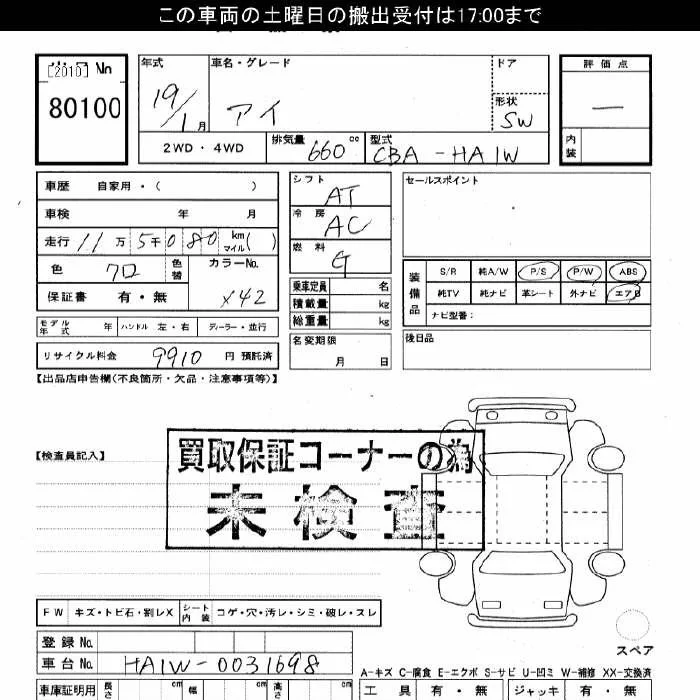 この車両の土曜日の搬出受付は17:00まで
[2010] No
80100
年式 19/1月
車名・グレード アイ
ドア
形状 SW
評価点 —
内装
2WD・4WD
排気量 660 cc
型式 CBA-HA1W
車歴 自家用・( )
車検 年 月
走行 11万5千080 km マイル( )
色 クロ 色替
カラーNo. X42
保証書 有・無
モデル年式 年 ハンドル 左・右 ディーラー・並行
リサイクル料金 9910 円 預託済
シフト AT
冷房 AC
燃料 G
乗車定員 名
積載量 kg
総重量 kg
名変期限 月 日
セールスポイント
装備品
S/R 純A/W P/S P/W ABS
純TV 純ナビ 革シート 外ナビ エアB
ナビ型番:
後日品
【出品店申告欄(不良箇所・欠品・注意事項等)】
【検査員記入】
買取保証コーナーの為
未検査
FW キズ・トビ石・割レX シート内装 コゲ・穴・汚レ・シミ・破レ・スレ
登録No.
車台No. HA1W-0031698
スペア
A-キズ C-腐食 E-エクボ S-サビ U-凹ミ W-補修 XX-交換済
車庫証明用 長さ cm 幅 cm 高さ cm
工具 有・無 ジャッキ 有・無